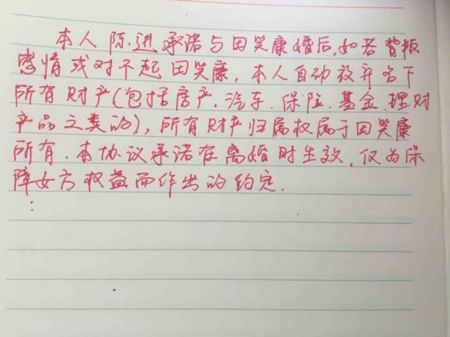 本人陈进承诺与田笑康婚后,如若背叛
感情或对不起田笑康,本人自动放弃名下
所有财产(包括房产.汽车.保险.基金理财
产品之类的),所有财产归属权属于田笑康
所有.本协议承诺在离婚时生效,仅为保
障女方权益而作出的约定.